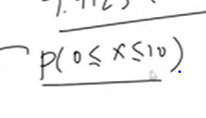 P(0 ≤ x ≤ 10)